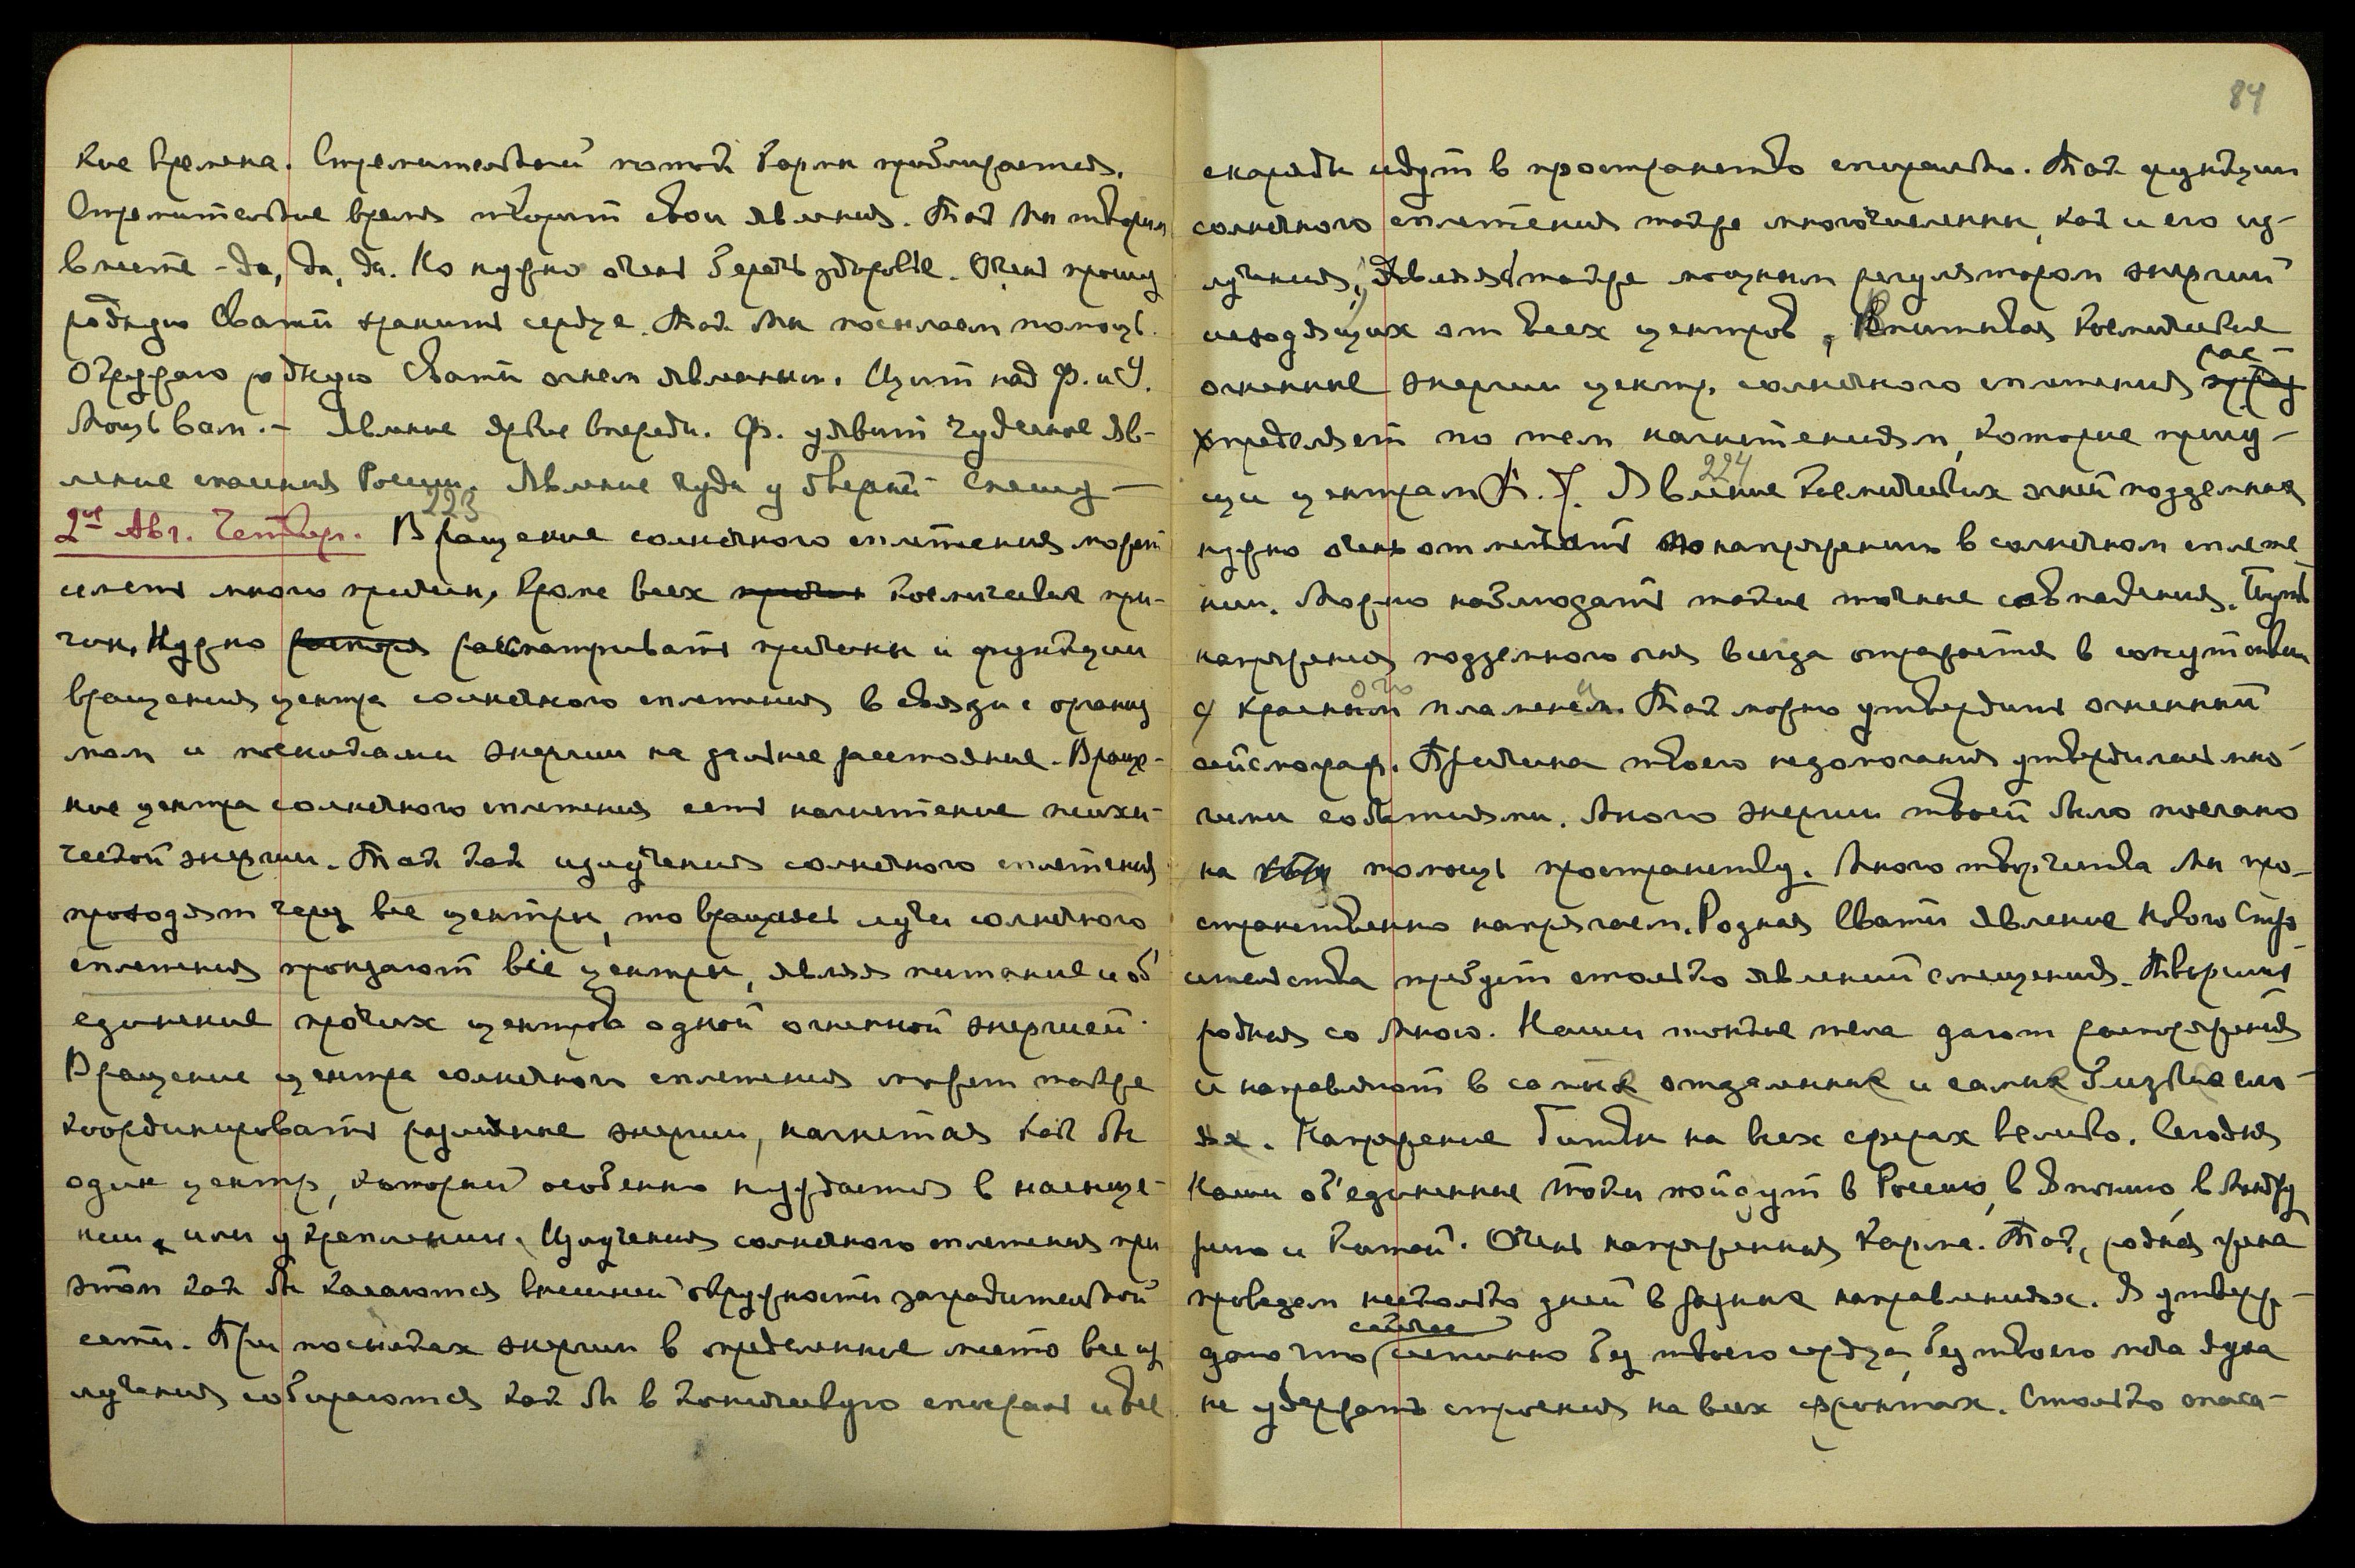 84
кие времена. Стремительный поток Кармы приближается.
Стремительное время творит свои явления. Так Мы творим
вместе – да, да, да. Но нужно очень беречь здоровье. Очень прошу
родную Свати хранить сердце. Так Мы посылаем помощь.
Окружаю родную Свати огнем явленным. Щит над Ф. и У.
Мощь вам. – Явление яркое впереди. Ф. уявит чудесное яв-
ление спасения России. Явление чуда у дверей – Спешу –
223
2ое Авг. Четверг. Вращение солнечного сплетения может
иметь много причин, кроме всех причин космических при-
чин, Нужно рассматривать причины и функции
вращения центра солнечного сплетения в связи с организ
мом и посылками энергии на дальнее расстояние. Враще-
ние центра солнечного сплетения есть нагнетение психи-
ческой энергии. Так как излучения солнечного сплетения
проходят через все центры, то вращаясь лучи солнечного
сплетения пронзают все центры, являя питание и об'
единение прочих центров одной огненной энергией.
Вращение центра солнечного сплетения может также
координировать различные энергии, нагнетая как бы
один центр, который особенно нуждается в насыще-
нии, или укреплении. Излучения солнечного сплетения при
этом как бы касаются внешней окружности заградительной
сети. При посылках энергии в определенное место все из
лучения собираются как бы в коническую спираль и все
снаряды идут в пространство спирально. Так функции
солнечного сплетения также многочисленны, как и его из-
лучения, Являясь также мощным регулятором энергий
исходящих от всех центров, Впитывая космические
рас-
огненные энергии центр солнечного сплетения
пределяет по тем нагнетениям, которые прису-
щи центрам А. Й. Явление космических огней подземных
224
нужно очень отмечать по напряжению в солнечном сплете
нии. Можно наблюдать такие точные совпадения. Путь
напряжения подземного огня всегда отражается в сопутствии
ого и
с красным пламенем. Так можно утвердить огненный
сейсмограф. Причина твоего недомогания утвердилась мно-
гими событиями. Много энергии твоей было послано
на помощь пространству. Много творчества Мы про-
странственно напрягаем. Родная Свати явление Нового Стро
ительства придет столько явлений смещения. Творишь
родная со Мною. Наши тонкие тела дают распоряжения
и направляют в самых отдаленных и самых близких сло-
ях. Напряжение битвы на всех сферах велико. Сегодня
Наши об'единенные токи пойдут в Россию, в Японию, в Манджу
рию и Китай. Очень напряженная Карма. Так, родная Урана
проведем несколько дней в разных направлениях. Я утверж-
сейчас
даю что именно без твоего сердца, без твоего меча духа
не удержать строения на всех фронтах. Столько опаса-